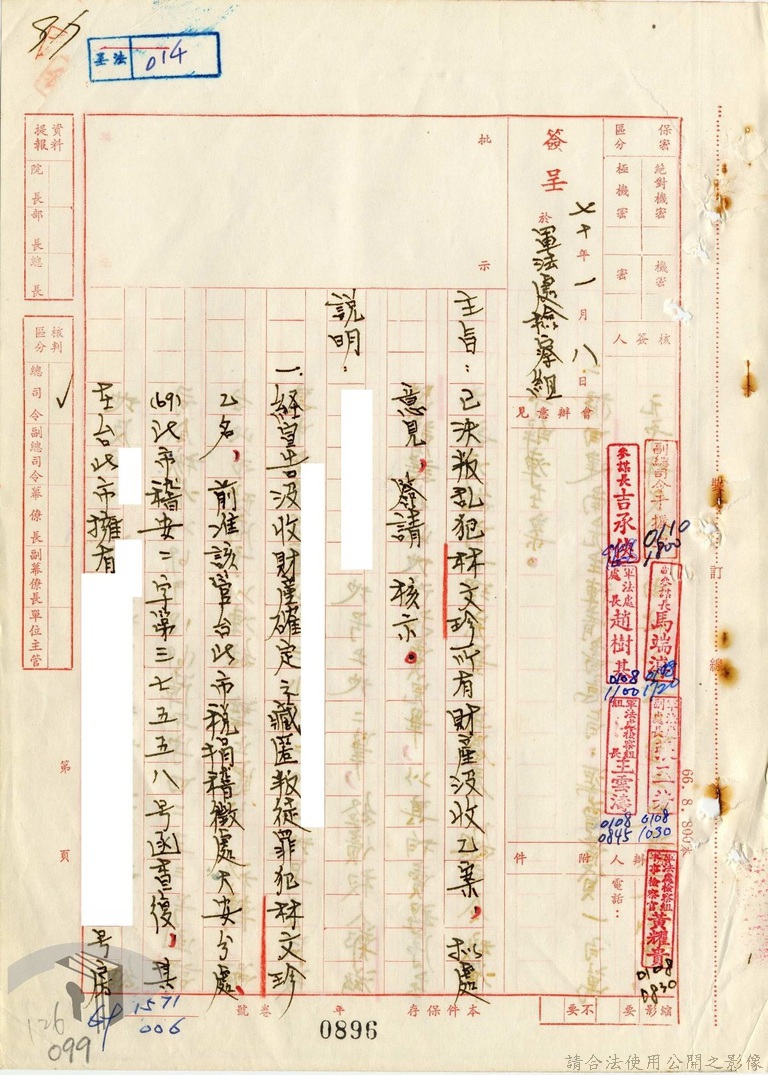 014
基法
保密區分
絕對機密
極機密
機密
密
核簽人
簽呈
七十年一月八日
於軍法處檢察組
會辦意見
批示
主旨：已決叛乱犯林文珍所有財產沒收乙案，拟處
意見，簽請　核示。
說明：
一、經宣告沒收財產確定之藏匿叛徒罪犯林文珍
乙名，前准該管台北市稅捐稽徵處大安分處
(69)北市稽安二字第三七五五八号函查復，其
在台北市擁有
号房
資料提報
院長
部長
總長
核判區分
總司令
副總司令
幕僚長
副幕僚長
單位主管
第　頁
裝訂線
66.8.800本
0110
1800
參謀長吉承
副參謀長馬端
軍法處處長趙樹其
0108
1100
1120
組長王雲濤
0108
0845
0108
1030
軍事檢察官黃耀貴
0108
0830
承辦人
電話：
附件
縮影
要
不要
本件保存　年
卷號
0896
1571
006
126
099
請合法使用公開之影像